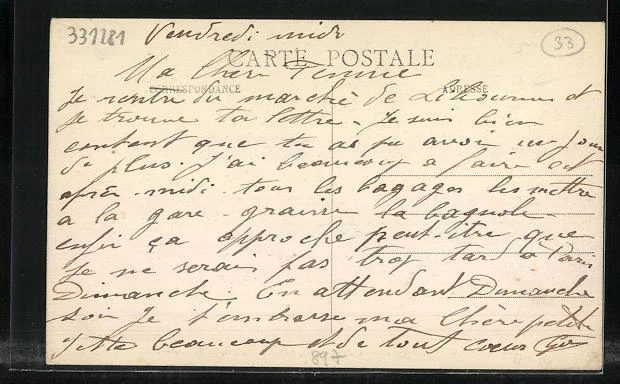 331281
Vendredi midi
33
CARTE POSTALE
Ma Chère Femme
CORRESPONDANCE
ADRESSE
Je rentre du marché de Libourne et
je trouve ta lettre - Je suis bien
content que tu as pu avoir un jour
de plus. J'ai beaucoup a faire cet
après-midi tous les bagages les mettre
a la gare - graisser la bagnole
enfin ça approche peut-être que
je ne serais pas trop tard a Paris
Dimanche. En attendant Dimanche
soir Je t'embrasse ma Chère petite
beaucoup et de tout coeur
897